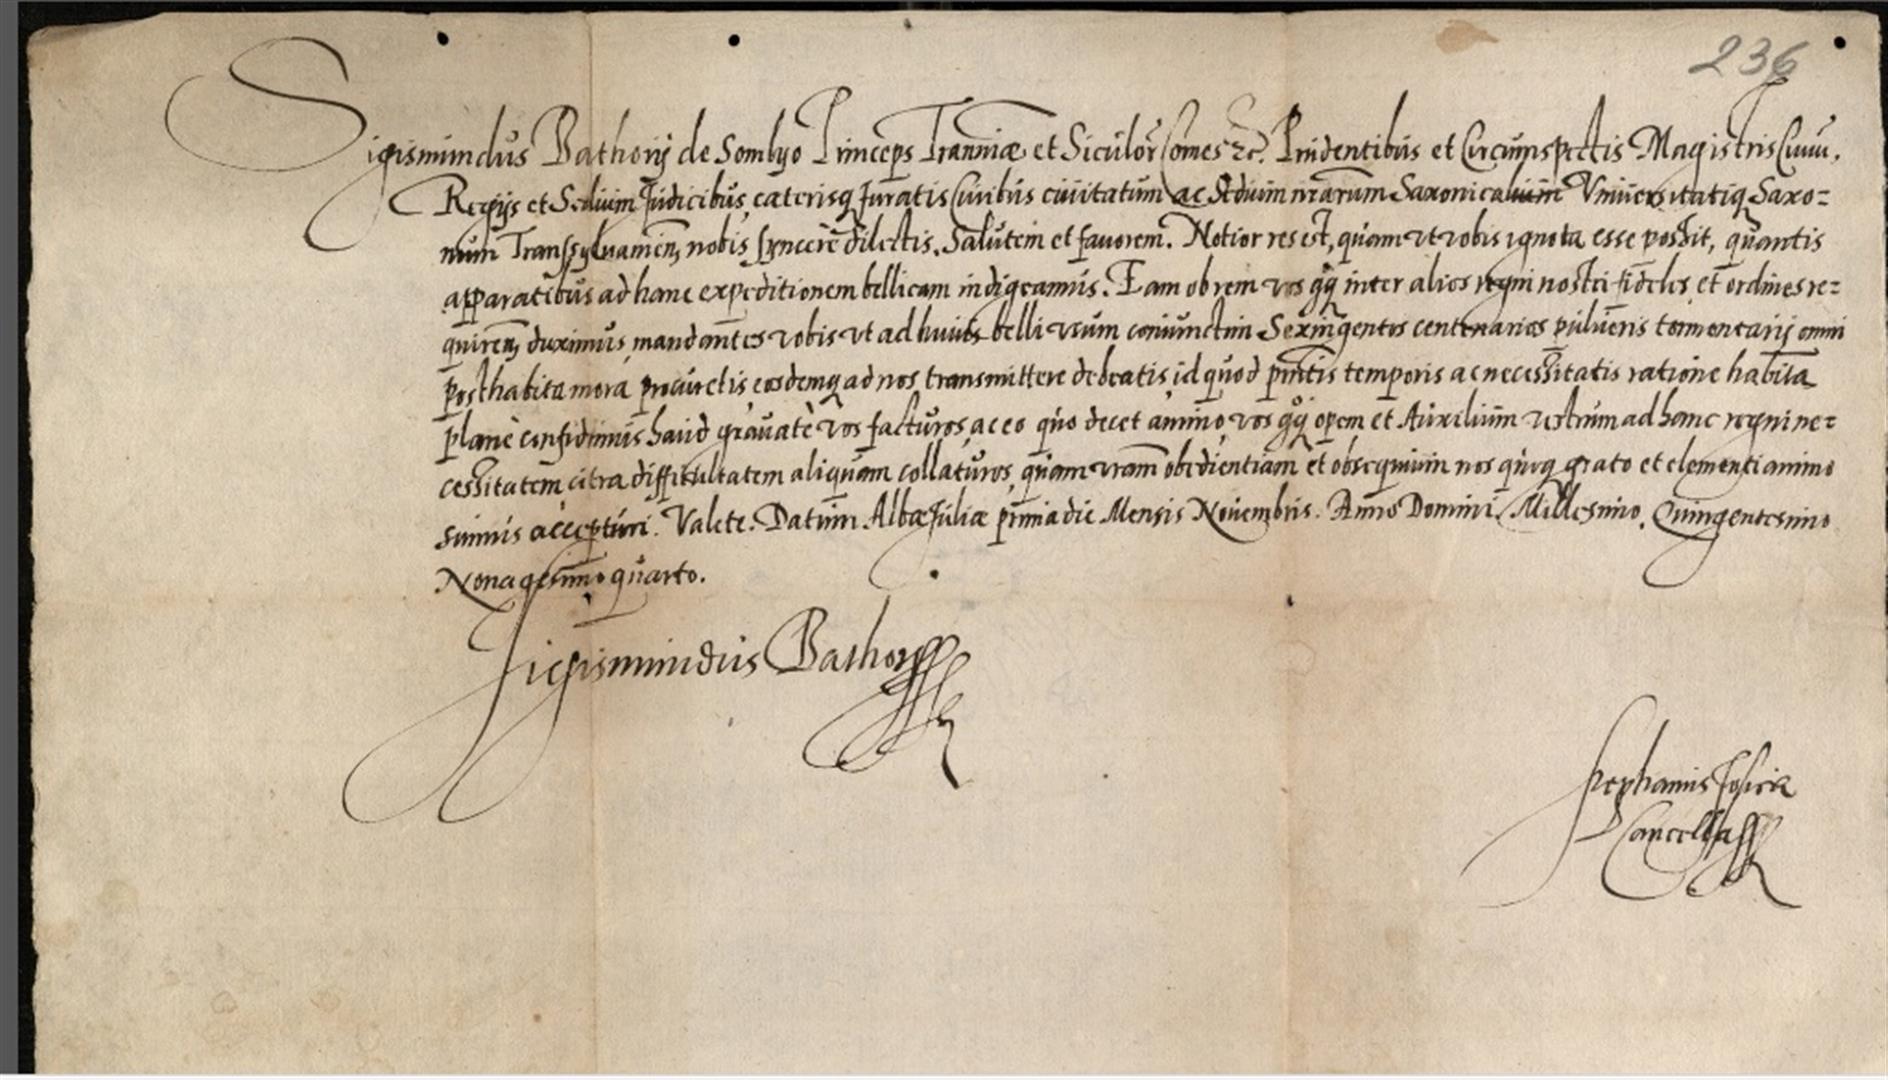 236
Sigismundus Bathory de Somlyo Princeps Tranniæ et Siculor Comes etc. Prudentibus et Circumspectis Magistris Civiu,
Regijs et Sedium Judicibus, cæterisq Juratis Civibus civitatum ac Sedium nrarum Saxonicalium Universitatiq Saxo=
num Transsylvanien, nobis syncerè dilectis. Salutem et favorem. Notior res est, quam ut vobis ignota esse possit, quantis
apparatibus ad hanc expeditionem bellicam indigeamus. Eam ob rem vos qq inter alios regni nostri fideles, et ordines re=
quiren, duximus, mandantes vobis ut ad huius belli usum coniunctim Sexingentos centenarios pulveris tormentarij omni
posthabita mora, procuretis, eosdemq ad nos transmittere debeatis, id quod pntis temporis ac necessitatis ratione habita
planè confidimus haud gravatè vos facturos, ac eo quo decet animo, vos qq opem et Auxilium vestrum ad hanc regni ne=
cessitatem citra difficultatem aliquam collaturos, quam vram obedientiam et obsequium nos quoq grato et clementi animo
sumus accepturi. Valete. Datum Albæ Juliæ prima die Mensis Novembris. Anno Domini. Millesimo. Quingentesimo
Nonagesimo quarto.
Sigismundus Bathory
Stephanus Josica
Cancella